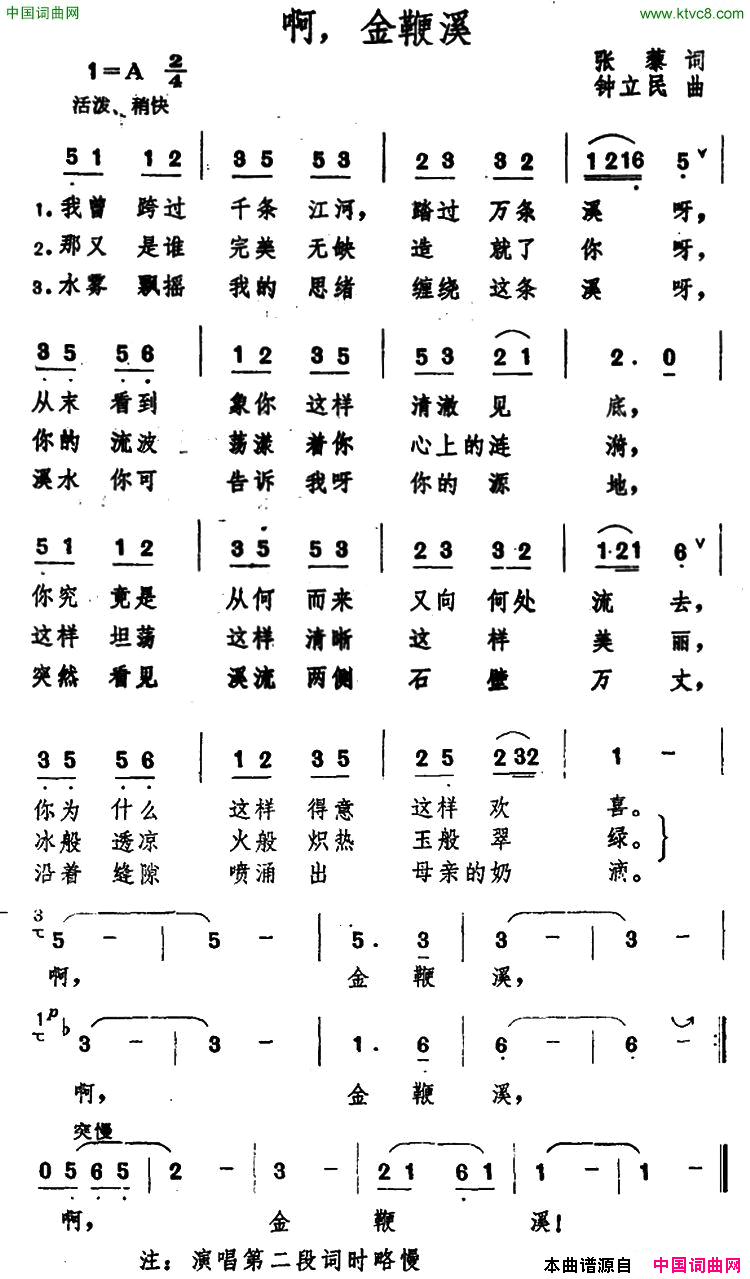 中国词曲网
www.ktvc8.com
啊，金鞭溪
1=A 2/4
张藜 词
钟立民 曲
活泼、稍快
5 1 1 2 | 3 5 5 3 | 2 3 3 2 | 1 2 1 6 5 ∨ |
1.我曾 跨过 千条 江河， 踏过 万条 溪 呀，
2.那又 是谁 完美 无缺 造 就了 你 呀，
3.水雾 飘摇 我的 思绪 缠绕 这条 溪 呀，
3 5 5 6 | 1 2 3 5 | 5 3 2 1 | 2. 0 |
从末 看到 象你 这样 清澈 见 底，
你的 流波 荡漾 着你 心上的 涟 漪，
溪水 你可 告诉 我呀 你的 源 地，
5 1 1 2 | 3 5 5 3 | 2 3 3·2 | 1·2 1 6 ∨ |
你究 竟是 从何 而来 又向 何处 流 去，
这样 坦荡 这样 清晰 这 样 美 丽，
突然 看见 溪流 两侧 石 壁 万 丈，
3 5 5 6 | 1 2 3 5 | 2 5 2 3 2 | 1 － |
你为 什么 这样 得意 这样 欢 喜。
冰般 透凉 火般 炽热 玉般 翠 绿。
沿着 缝隙 喷涌 出 母亲的 奶 滴。
3 5 － | 5 － | 5. 3 | 3 － | 3 － |
啊， 金 鞭 溪，
1 p ♭3 － | 3 － | 1. 6 | 6 － | 6 － :‖
啊， 金 鞭 溪，
突慢
0 5 6 5 | 2 － | 3 － | 2 1 6 1 | 1 － | 1 － ‖
啊， 金 鞭 溪！
注：演唱第二段词时略慢
本曲谱源自 中国词曲网